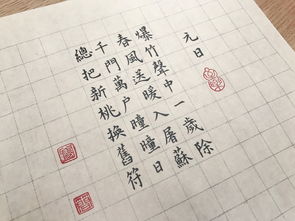 元日
爆竹聲中一歲除
春風送暖入屠蘇
千門萬户曈曈日
總把新桃換舊符